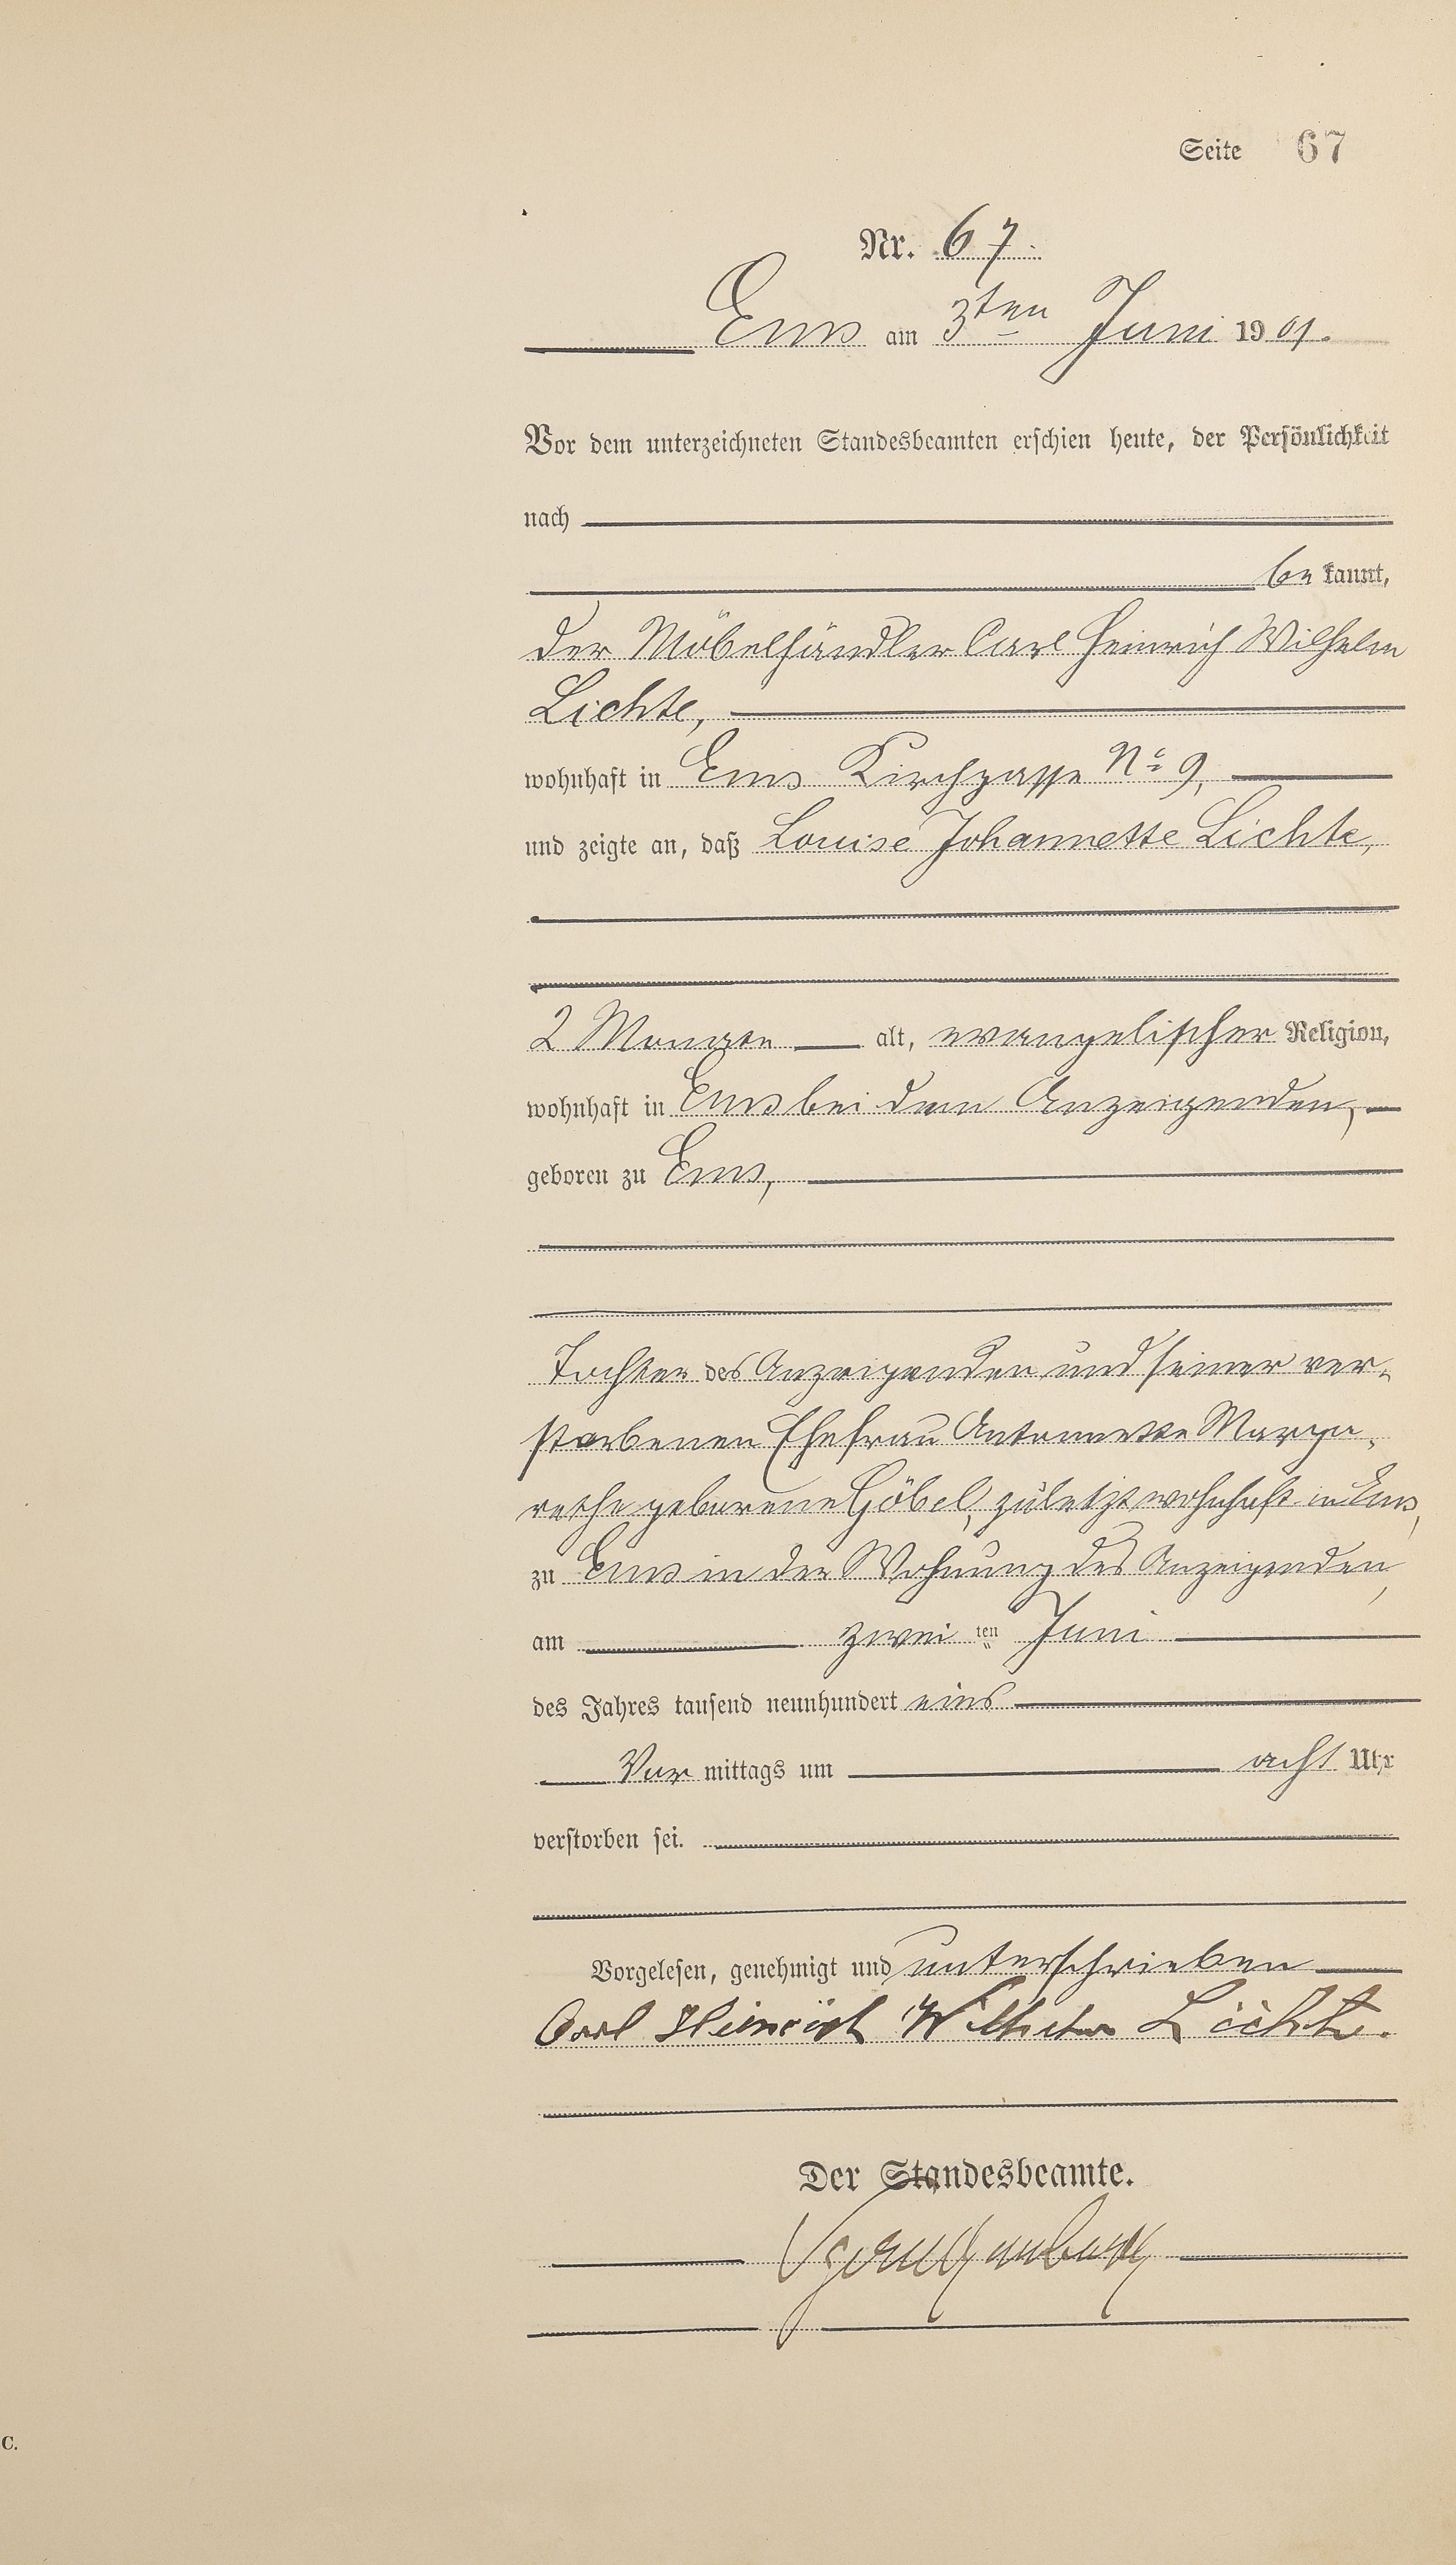 Seite 67
Nr. 67.
Ems am 3ten Juni 1901.
Vor dem unterzeichneten Standesbeamten erschien heute, der Persönlichkeit
nach
be kannt,
der Möbelhändler Carl Heinrich Wilhelm
Lichte,
wohnhaft in Ems Kirchgasse No 9,
und zeigte an, daß Louise Johannette Lichte,
2 Monate alt, evangelischer Religion,
wohnhaft in Ems bei dem Anzeigenden,
geboren zu Ems,
Tochter des Anzeigenden und seiner ver-
storbenen Ehefrau Antonnette Marga-
rethe geborene Göbel, zuletzt wohnhaft in Ems,
zu Ems in der Wohnung des Anzeigenden,
am zwei ten Juni
des Jahres tausend neunhundert eins
Vor mittags um acht Uhr
verstorben sei.
Vorgelesen, genehmigt und unterschrieben
Carl Heinrich Wilhelm Lichte.
Der Standesbeamte.
C.